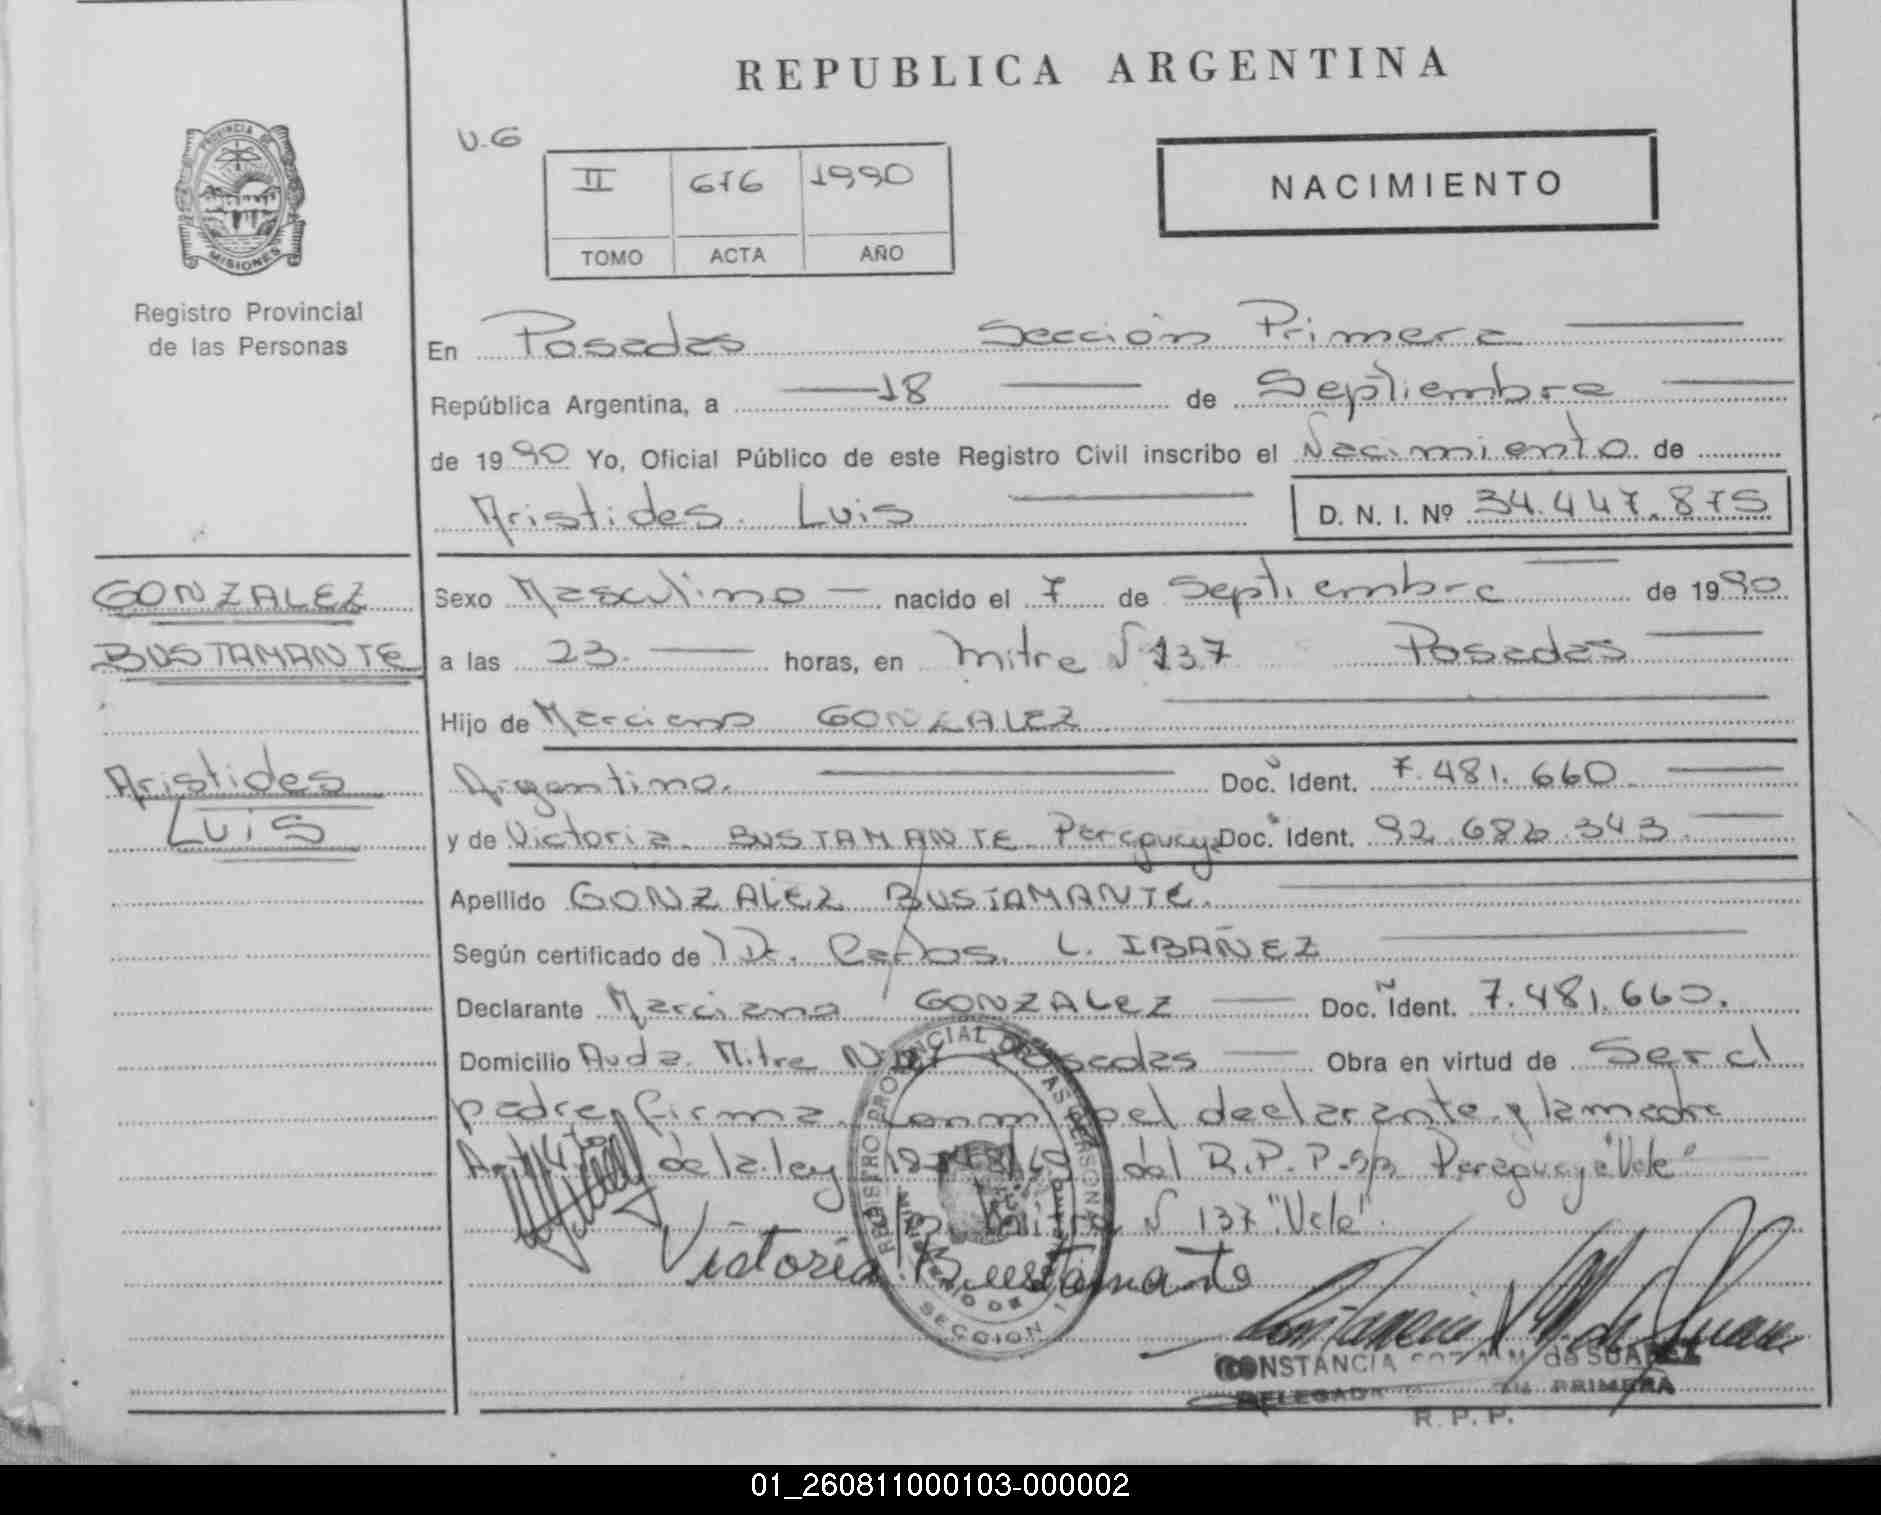 REPUBLICA ARGENTINA
U.G
II 616 1990
TOMO ACTA AÑO
NACIMIENTO
PROVINCIA DE
MISIONES
Registro Provincial
de las Personas
En Posadas Sección Primera
República Argentina, a 18 de Septiembre
de 1990 Yo, Oficial Público de este Registro Civil inscribo el Nacimiento de
Aristides Luis D. N. I. Nº 34.447.875
GONZALEZ
BUSTAMANTE
Aristides
Luis
Sexo Masculino nacido el 7 de Septiembre de 1990
a las 23 horas, en Mitre N 137 Posadas
Hijo de Marciano GONZALEZ
Argentino. Doc. Ident. 7.481.660
y de Victoria BUSTAMANTE Paraguaya Doc. Ident. 92.682.343
Apellido GONZALEZ BUSTAMANTE.
Según certificado de Dr. Carlos L. IBAÑEZ
Declarante Marciano GONZALEZ Doc. Ident. 7.481.660.
Domicilio Avda. Mitre Posadas Obra en virtud de Ser el
padre, firma el declarante y la madre
de la ley del R.P.P. Paraguaya "Vale"
Mitre N 137 "Vale".
Victoria Bustamante
REGISTRO PROVINCIAL DE LAS PERSONAS
SECCION 1
CONSTANCIA M. de SUAREZ
DELEGADA PRIMERA
R. P. P.
01_260811000103-000002